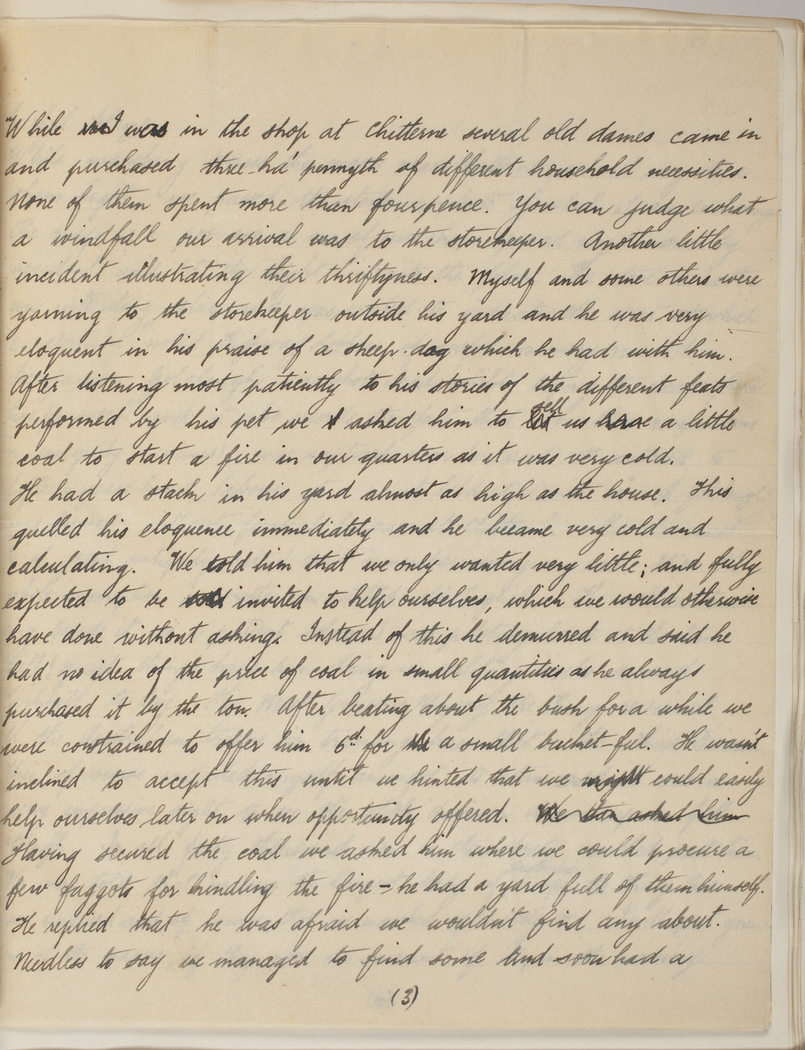 While I was in the shop at Chitterne several old dames came in
and purchased three-ha' pennyth of different household necessities.
None of them spent more than fourpence. You can judge what
a windfall our arrival was to the storekeeper. Another little
incident illustrating their thriftyness. Myself and some others were
yarning to the storekeeper outside his yard and he was very
eloquent in his praise of a sheep-dog which he had with him.
After listening most patiently to his stories of the different feats
performed by his pet we asked him to sell us a little
coal to start a fire in our quarters as it was very cold.
He had a stack in his yard almost as high as the house. This
quelled his eloquence immediately and he became very cold and
calculating. We told him that we only wanted very little; and fully
expected to be invited to help ourselves, which we would otherwise
have done without asking. Instead of this he demurred and said he
had no idea of the price of coal in small quantities as he always
purchased it by the ton. After beating about the bush for a while we
were constrained to offer him 6d. for a small bucket-ful. He wasn't
inclined to accept this until we hinted that we might could easily
help ourselves later on when opportunity offered. We then asked him
Having secured the coal we asked him where we could procure a
few faggots for kindling the fire - he had a yard full of them himself.
He replied that he was afraid we wouldn't find any about.
Needless to say we managed to find some and soon had a
(3)